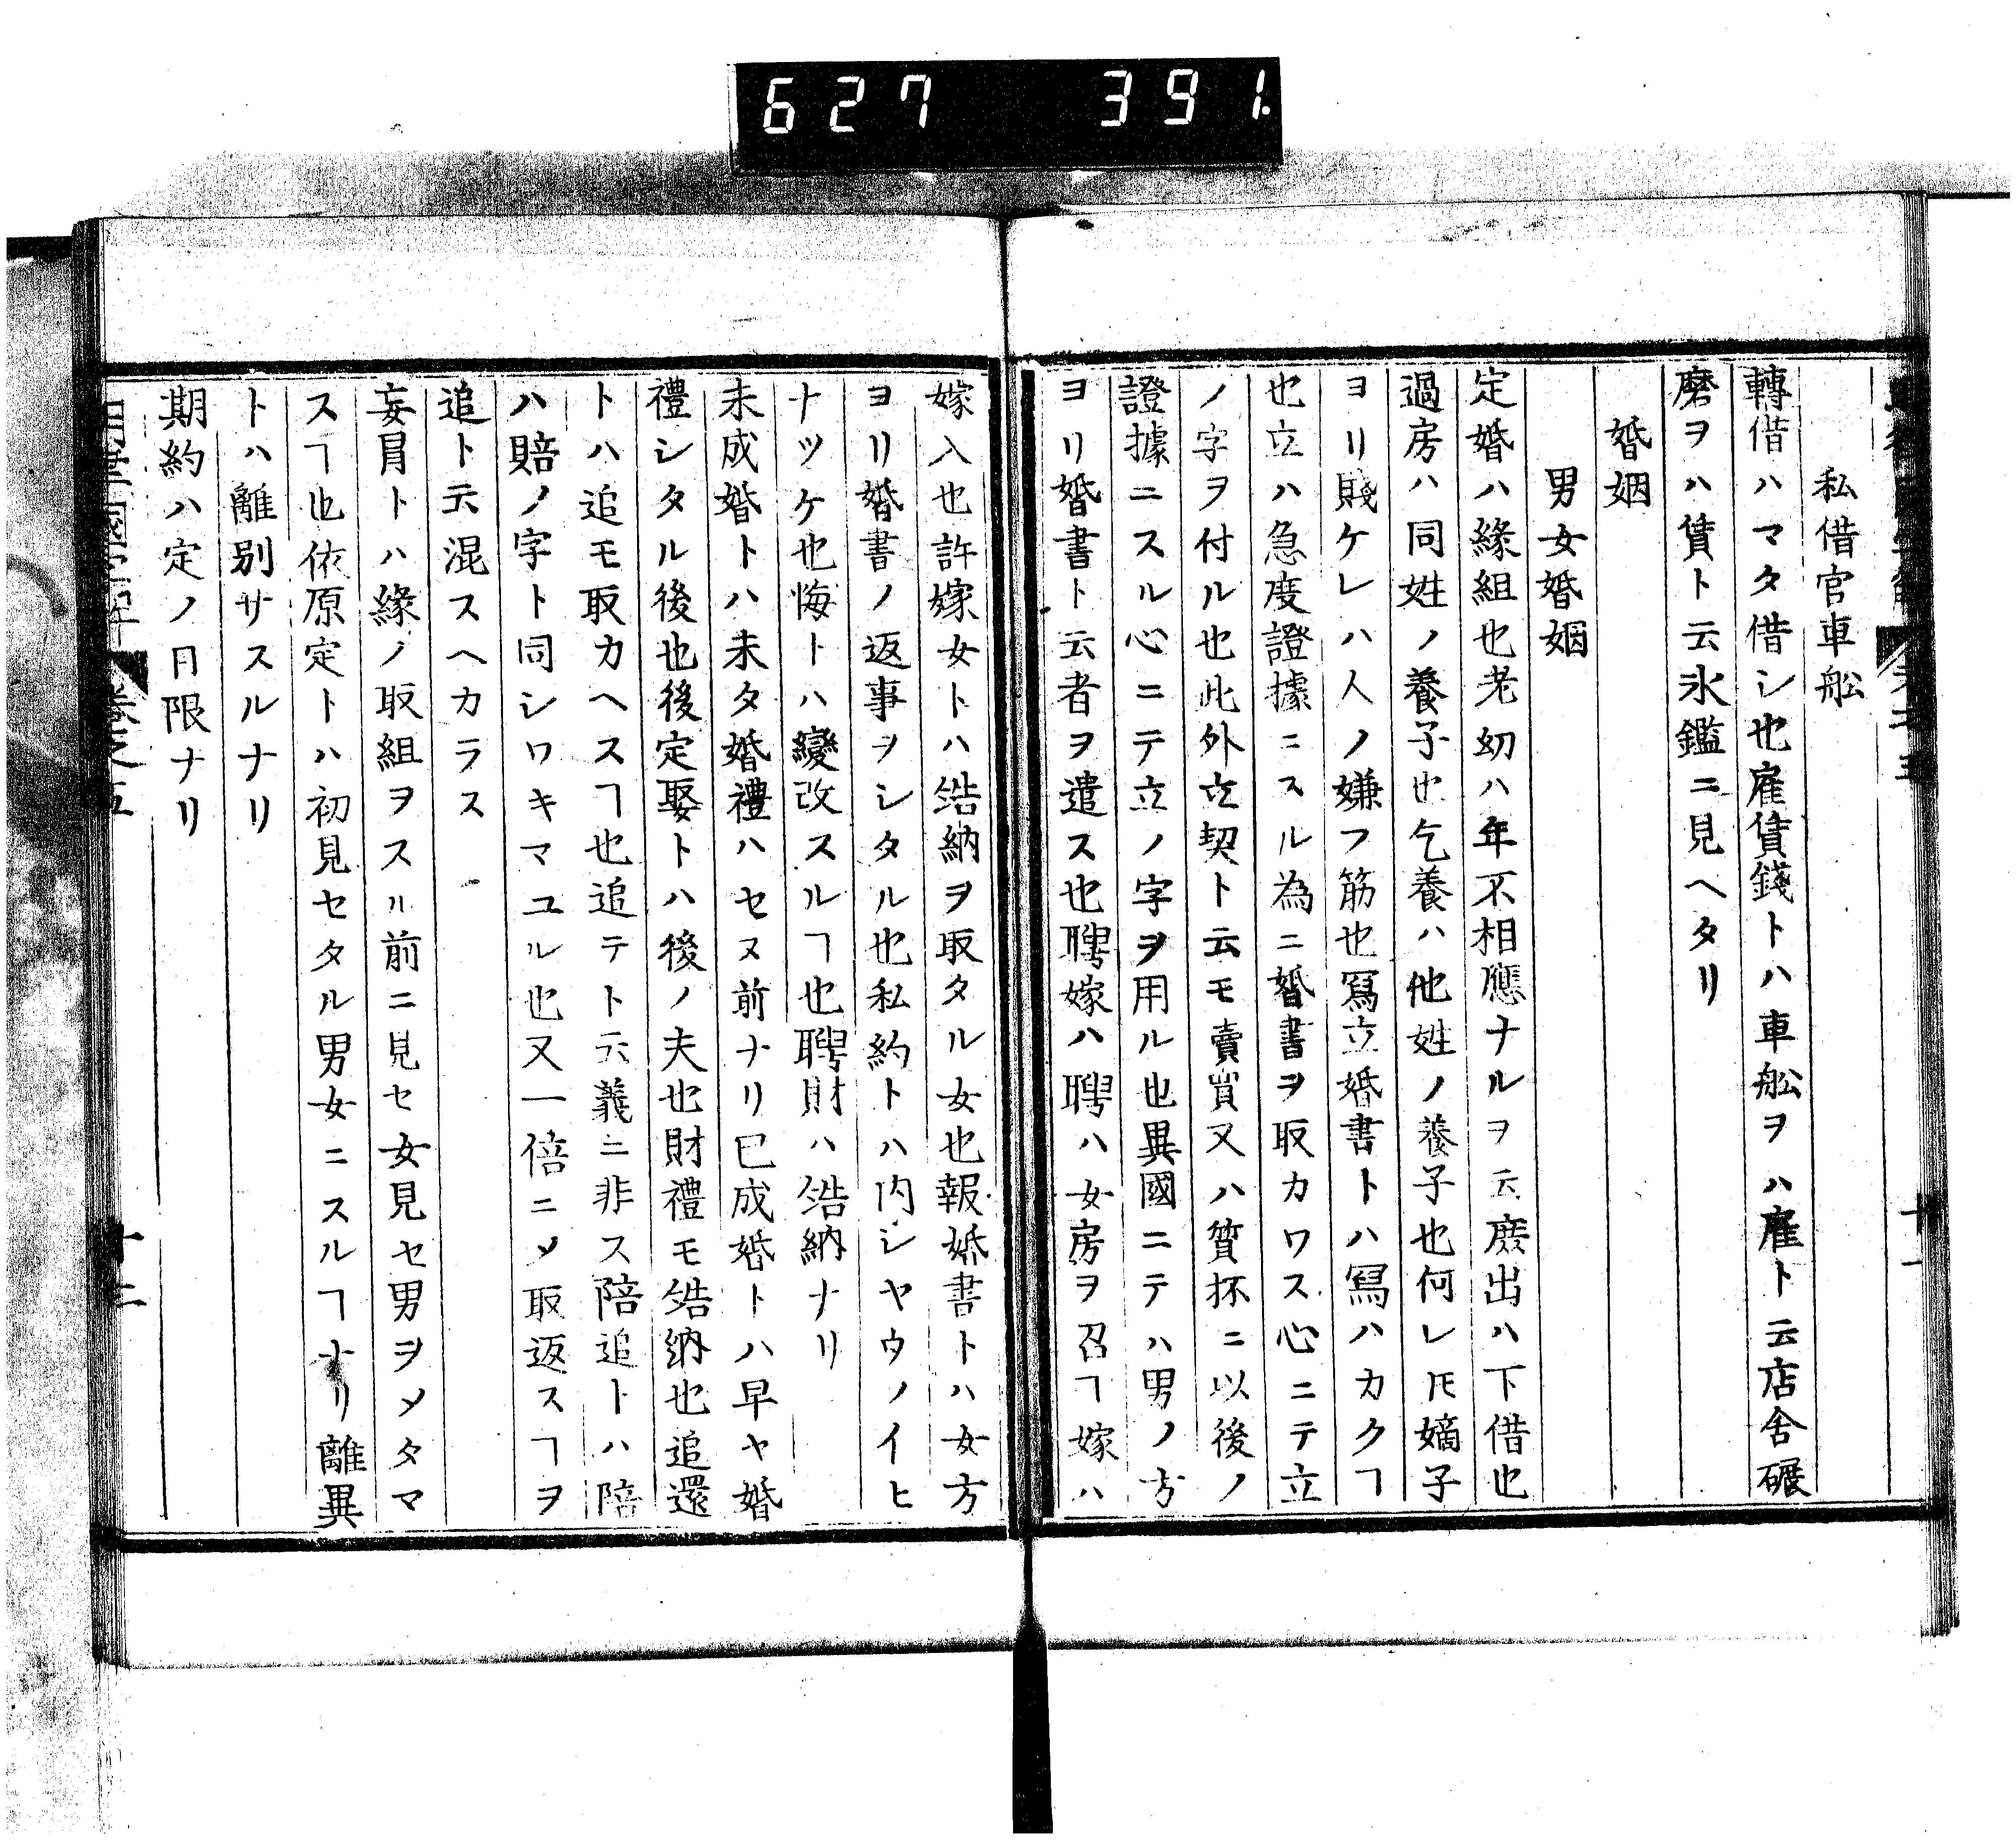 627 391
私借官車舩
轉借ハマタ借シ也雇賃錢トハ車舩ヲハ雇ト云店舎碾
磨ヲハ賃ト云氷鑑ニ見ヘタリ
婚姻
男女婚姻
定婚ハ緣組也老幼ハ年不相應ナルヲ云庶出ハ下借也
過房ハ同姓ノ養子也乞養ハ他姓ノ養子也何レ𪜈嫡子
ヨリ賤ケレハ人ノ嫌フ筋也冩立婚書トハ冩ハカクヿ
也立ハ急度證據ニスル為ニ婚書ヲ取カワス心ニテ立
ノ字ヲ付ル也此外立契ト云モ賣買又ハ質抔ニ以後ノ
證據ニスル心ニテ立ノ字ヲ用ル也異國ニテハ男ノ方
ヨリ婚書ト云者ヲ遣ス也聘嫁ハ聘ハ女房ヲ召ヿ嫁ハ
嫁入也許嫁女トハ結納ヲ取タル女也報婚書トハ女方
ヨリ婚書ノ返事ヲシタル也私約トハ内シヤウノイヒ
ナツケ也悔トハ變改スルヿ也聘財ハ結納ナリ
未成婚トハ未タ婚禮ハセヌ前ナリ已成婚トハ早ヤ婚
禮シタル後也後定娶トハ後ノ夫也財禮モ結納也追還
トハ追モ取カヘスヿ也追テト云義ニ非ス陪追トハ陪
ハ賠ノ字ト同シワキマユル也又一倍ニメ取返スヿヲ
追ト云混スヘカラス
妄冐トハ緣ノ取組ヲスル前ニ見セ女見セ男ヲメタマ
スヿ也依原定トハ初見セタル男女ニスルヿナリ離異
トハ離別サスルナリ
期約ハ定ノ日限ナリ
卷之五
十二